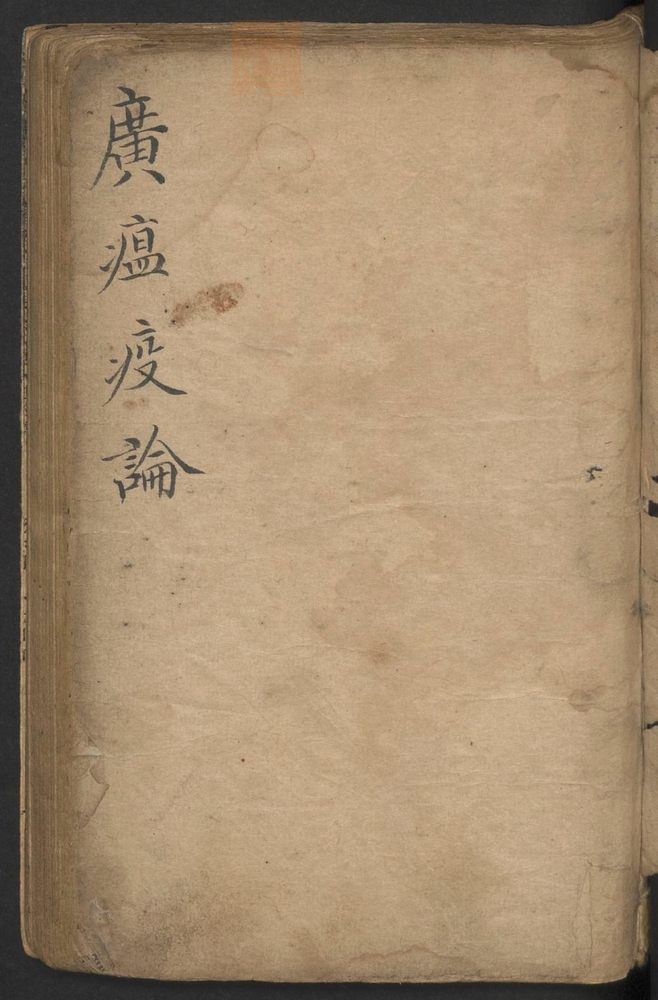 廣瘟疫論